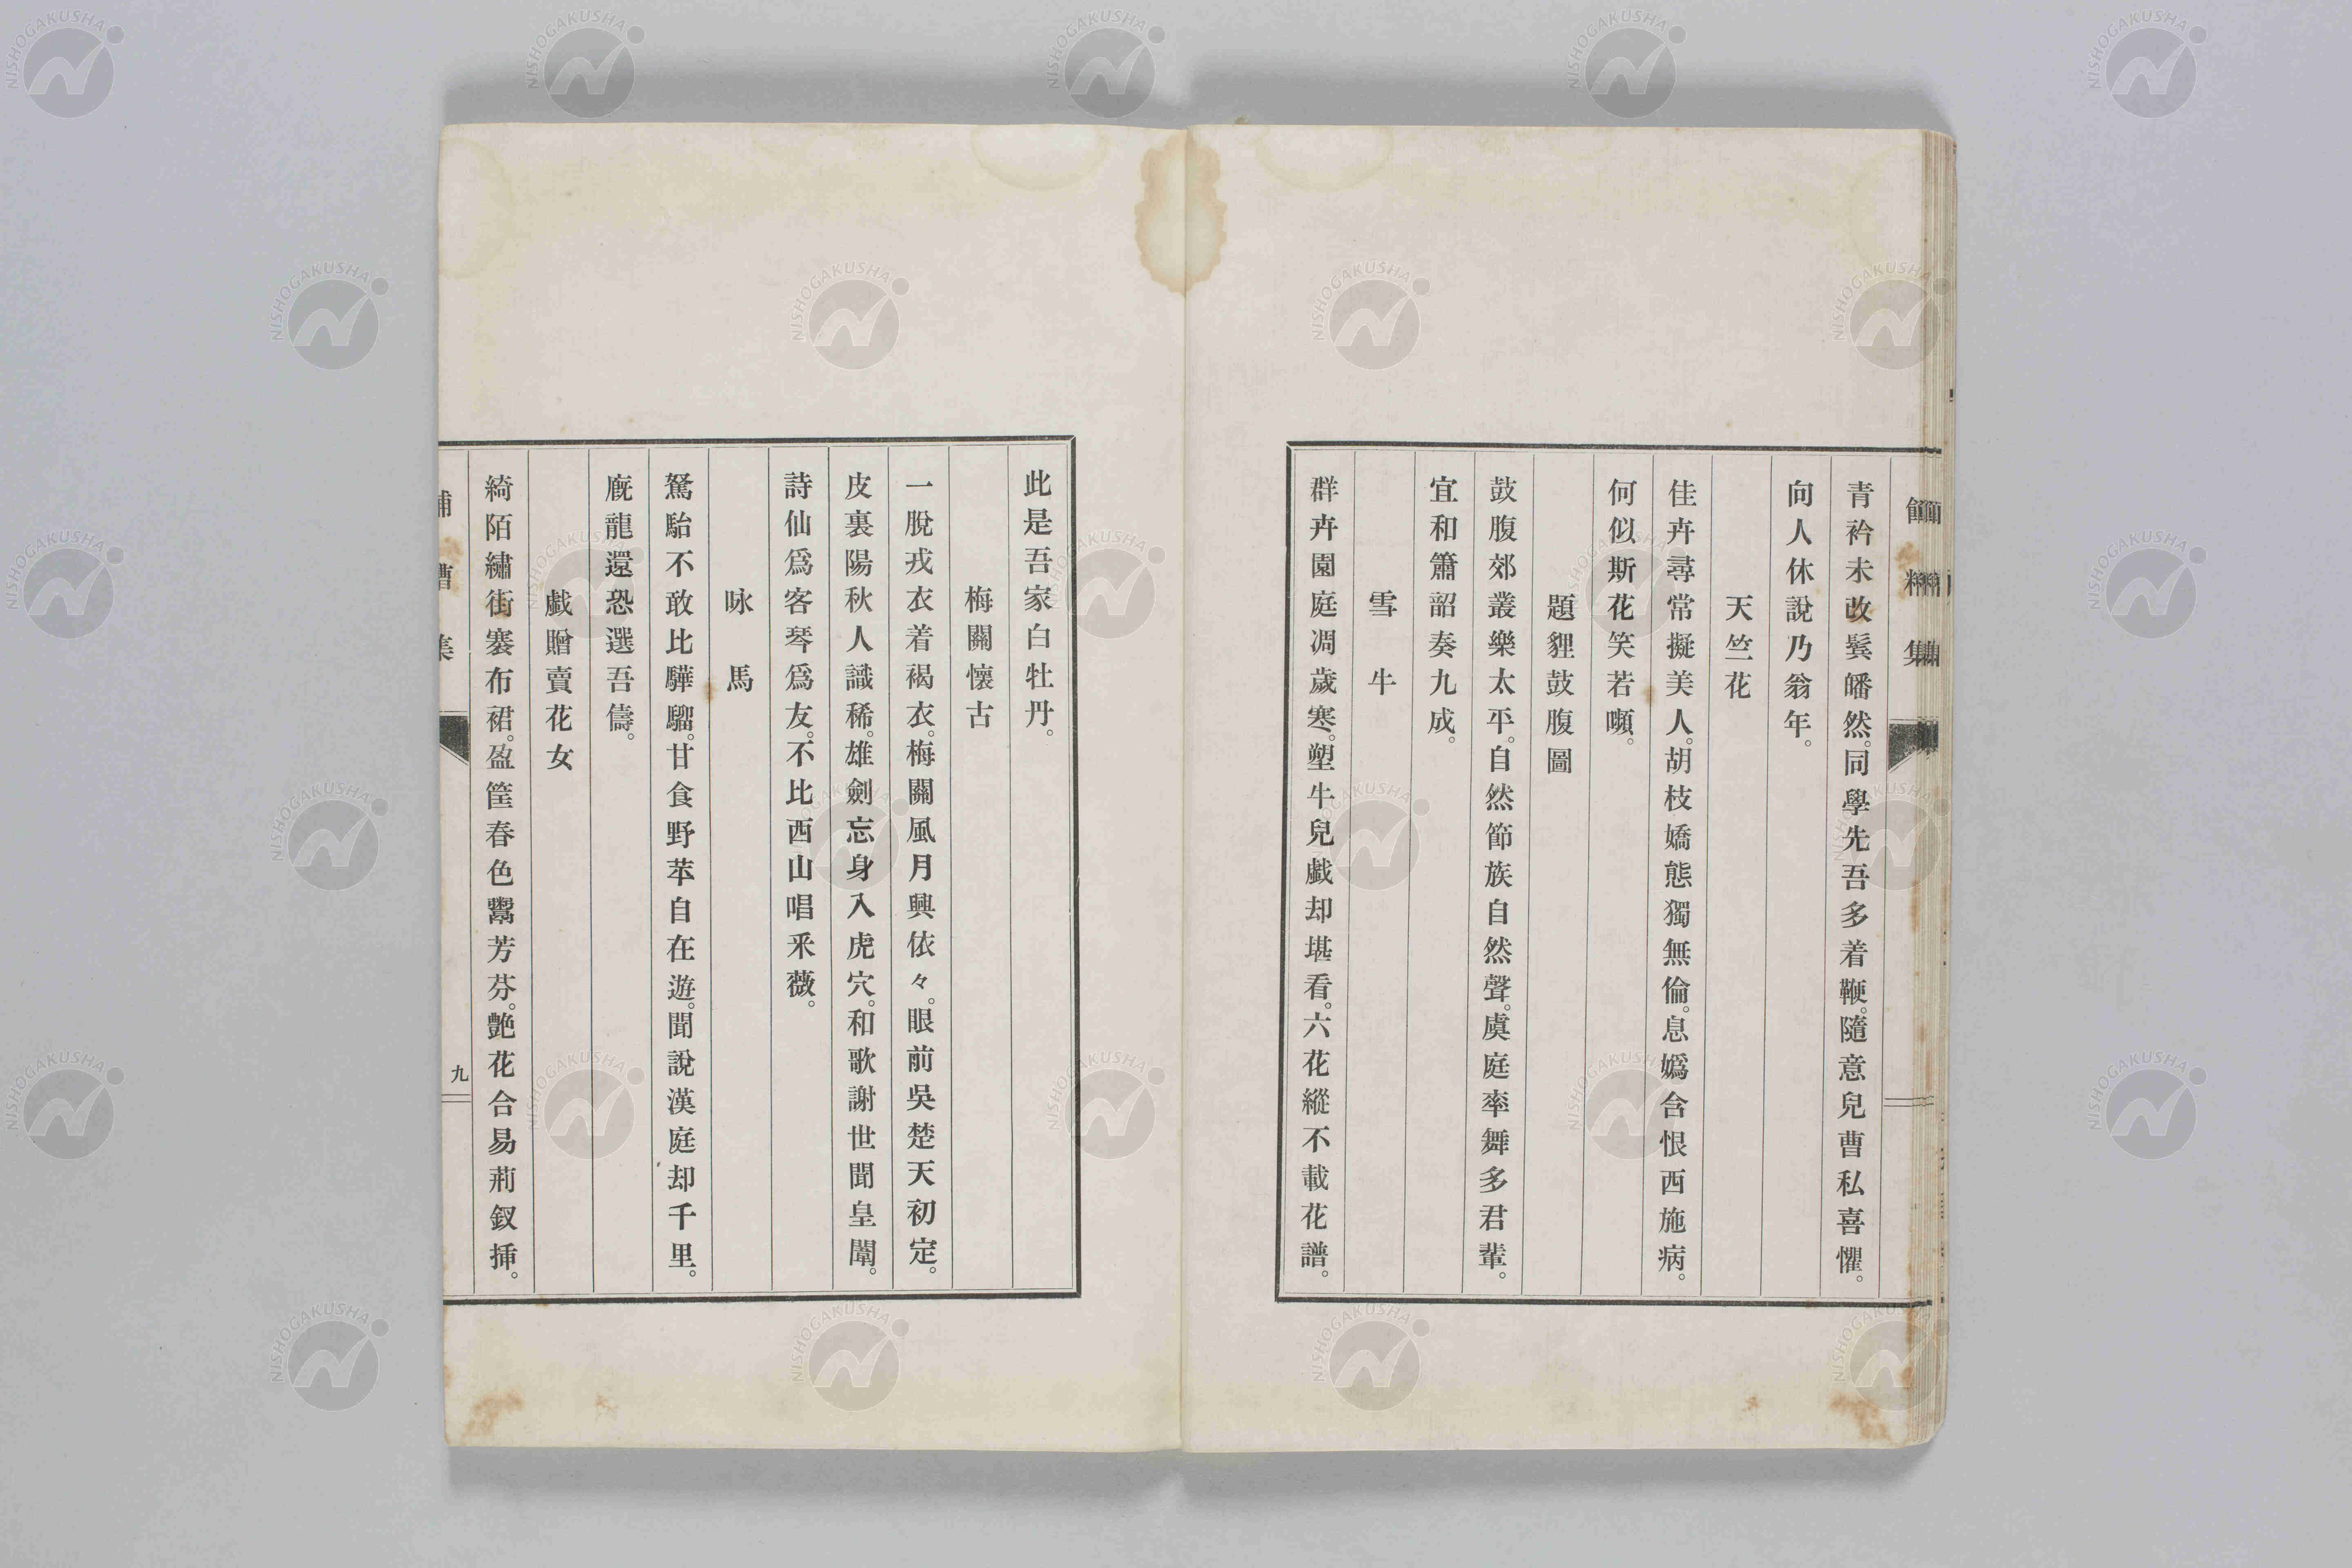 餔糟集
青衿未改鬓皤然。同學先吾多着鞭。隨意兒曹私喜懼。
向人休說乃翁年。
天竺花
佳卉尋常擬美人。胡枝嬌態獨無倫。息嬀含恨西施病。
何似斯花笑若嚬。
題貍鼓腹圖
鼓腹郊叢樂太平。自然節族自然聲。虞庭率舞多君輩。
宜和簫韶奏九成。
雪牛
群卉園庭凋歲寒。塑牛兒戯却堪看。六花縱不載花譜。
此是吾家白牡丹。
梅關懷古
一脫戎衣着褐衣。梅關風月興依々。眼前吳楚天初定。
皮裏陽秋人識稀。雄劍忘身入虎穴。和歌謝世聞皇闈。
詩仙爲客琴爲友。不比西山唱釆薇。
咏馬
駑駘不敢比驊騮。甘食野苹自在遊。聞說漢庭却千里。
廐龍還恐選吾儔。
戯贈賣花女
綺陌繡街褰布裙。盈筐春色鬻芳芬。艶花合易荊釵揷。
九